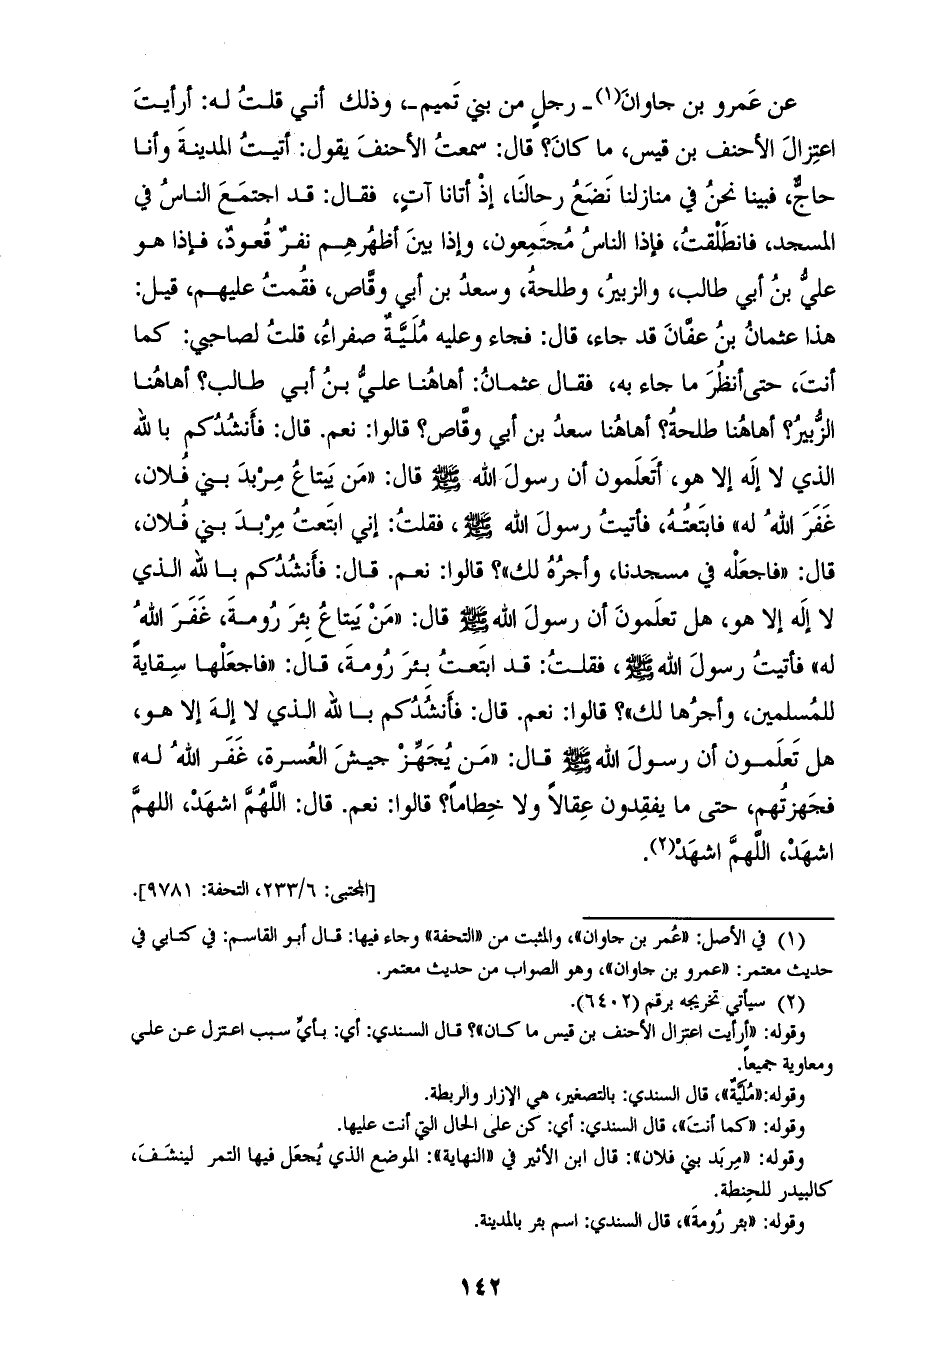 عن عَمرو بن جاوانَ(١) ـ رجلٍ من بني تَميم ـ، وذلك أني قلتُ له: أرأيتَ
اعتِزالَ الأحنف بن قيس، ما كانَ؟ قال: سمعتُ الأحنفَ يقول: أتيتُ المدينةَ وأنا
حاجٌّ، فبينا نحنُ في منازلنا نَضَعُ رحالنَا، إذْ أتانا آتٍ، فقال: قد اجتمَعَ الناسُ في
المسجد، فانطَلَقتُ، فإذا الناسُ مُجتَمِعون، وإذا بينَ أظهُرِهِم نفرٌ قُعودٌ، فإذا هو
عليُّ بنُ أبي طالب، والزبيرُ، وطلحةُ، وسعدُ بن أبي وقَّاص، فقُمتُ عليهم، قيل:
هذا عثمانُ بنُ عفَّانَ قد جاء، قال: فجاء وعليه مُلَيَّةٌ صفراءُ، قلتُ لصاحبي: كما
أنتَ، حتى أنظُرَ ما جاء به، فقال عثمانُ: أهاهُنا عليُّ بنُ أبي طالب؟ أهاهُنا
الزُّبيرُ؟ أهاهُنا طلحةُ؟ أهاهُنا سعدُ بن أبي وقَّاص؟ قالوا: نعم. قال: فأَنشُدُكم با لله
الذي لا إلَه إلا هو، أتَعلَمون أن رسولَ الله ﷺ قال: «مَن يَبتاعُ مِرْبدَ بني فُلان،
غَفَرَ اللهُ له» فابتَعتُهُ، فأتيتُ رسولَ الله ﷺ، فقلتُ: إني ابتَعتُ مِرْبدَ بني فُلان،
قال: «فاجعَلْه في مسجدنا، وأجرُهُ لك»؟ قالوا: نعم. قال: فأَنشُدُكم با لله الذي
لا إلَه إلا هو، هل تعلَمونَ أن رسولَ الله ﷺ قال: «مَنْ يَبتاعُ بِئرَ رُومةَ، غَفَرَ اللهُ
له» فأتيتُ رسولَ الله ﷺ، فقلتُ: قد ابتَعتُ بئرَ رُومةَ، قال: «فاجعَلْها سِقايةً
للمُسلمين، وأجرُها لك»؟ قالوا: نعم. قال: فأَنشُدُكم با لله الذي لا إلهَ إلا هو،
هل تَعلَمون أن رسولَ الله ﷺ قال: «مَن يُجَهِّزْ جيشَ العُسرة، غَفَر اللهُ له»
فجَهزتُهم، حتى ما يفقِدون عِقالاً ولا خِطاماً؟ قالوا: نعم. قال: اللَّهُمَّ اشهَدْ، اللهمَّ
اشهَدْ، اللَّهمَّ اشهَدْ(٢).
[المجتبى: ٢٣٣/٦، التحفة: ٩٧٨١].
(١) في الأصل: «عُمر بن جاوان»، والمثبت من «التحفة» وجاء فيها: قال أبو القاسم: في كتابي في
حديث معتمر: «عمرو بن جاوان»، وهو الصواب من حديث معتمر.
(٢) سيأتي تخريجه برقم (٦٤٠٢).
وقوله: «أرأيت اعتزال الأحنف بن قيس ما كان»؟ قال السندي: أي: بأيِّ سبب اعتزل عن علي
ومعاوية جميعاً.
وقوله:«مُلَيَّةٌ»، قال السندي: بالتصغير، هي الإزار والربطة.
وقوله: «كما أنتَ»، قال السندي: أي: كن على الحال التي أنت عليها.
وقوله: «مِربَد بني فلان»: قال ابن الأثير في «النهاية»: الموضع الذي يُجعَل فيها التمر لينشَفَ،
كالبيدر للحِنطة.
وقوله: «بئر رُومةَ»، قال السندي: اسم بئر بالمدينة.
١٤٢